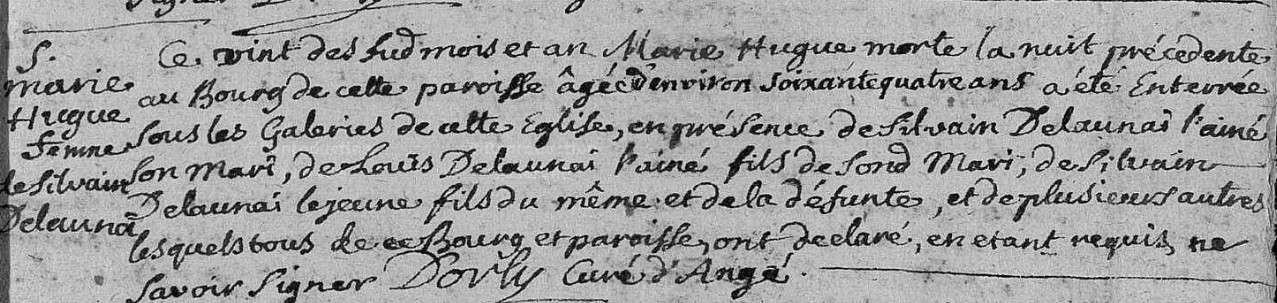 signer
S.
marie
Hugue
femme
de Silvain
Delaunai
Ce vint des sud mois et an Marie Hugue morte la nuit précedente
au Bourg de cette paroisse âgée d'environ soixante quatre ans a été Enterrée
sous les Galeries de cette Eglise, en présence de silvain Delaunai l'ainé
son Mari, de Louïs Delaunai l'ainé fils de sond Mari, de silvain
Delaunai le jeune fils du même et de la défunte, et de plusieurs autres
lesquels tous de ce Bourg et paroisse, ont declaré, en etant requis, ne
savoir signer Dorly Curé d'Angé.